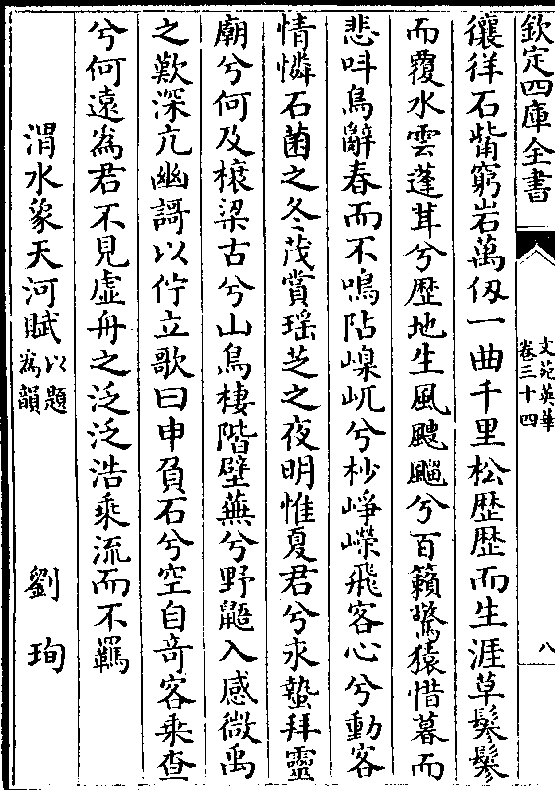 欽定四庫全書
文苑英華
卷三十四
八
徿徉石觜窮岩萬仭一曲千里松歴歴而生涯草鬖鬖
而覆水雲蓬茸兮歴地生風颼飀兮百籟驚猿惜暮而
悲呌鳥辭春而不鳴阽嵲屼兮杪崢嶸飛客心兮動客
情憐石菌之冬茂賞瑶芝之夜明惟夏君兮求蟄拜靈
廟兮何及榱梁古兮山鳥棲階壁蕪兮野鼯入感微禹
之歎深亢幽謌以佇立歌曰申負石兮空自竒客乗查
兮何遠為君不見虚舟之泛泛浩乗流而不羈
渭水象天河賦以題為韻
劉珣